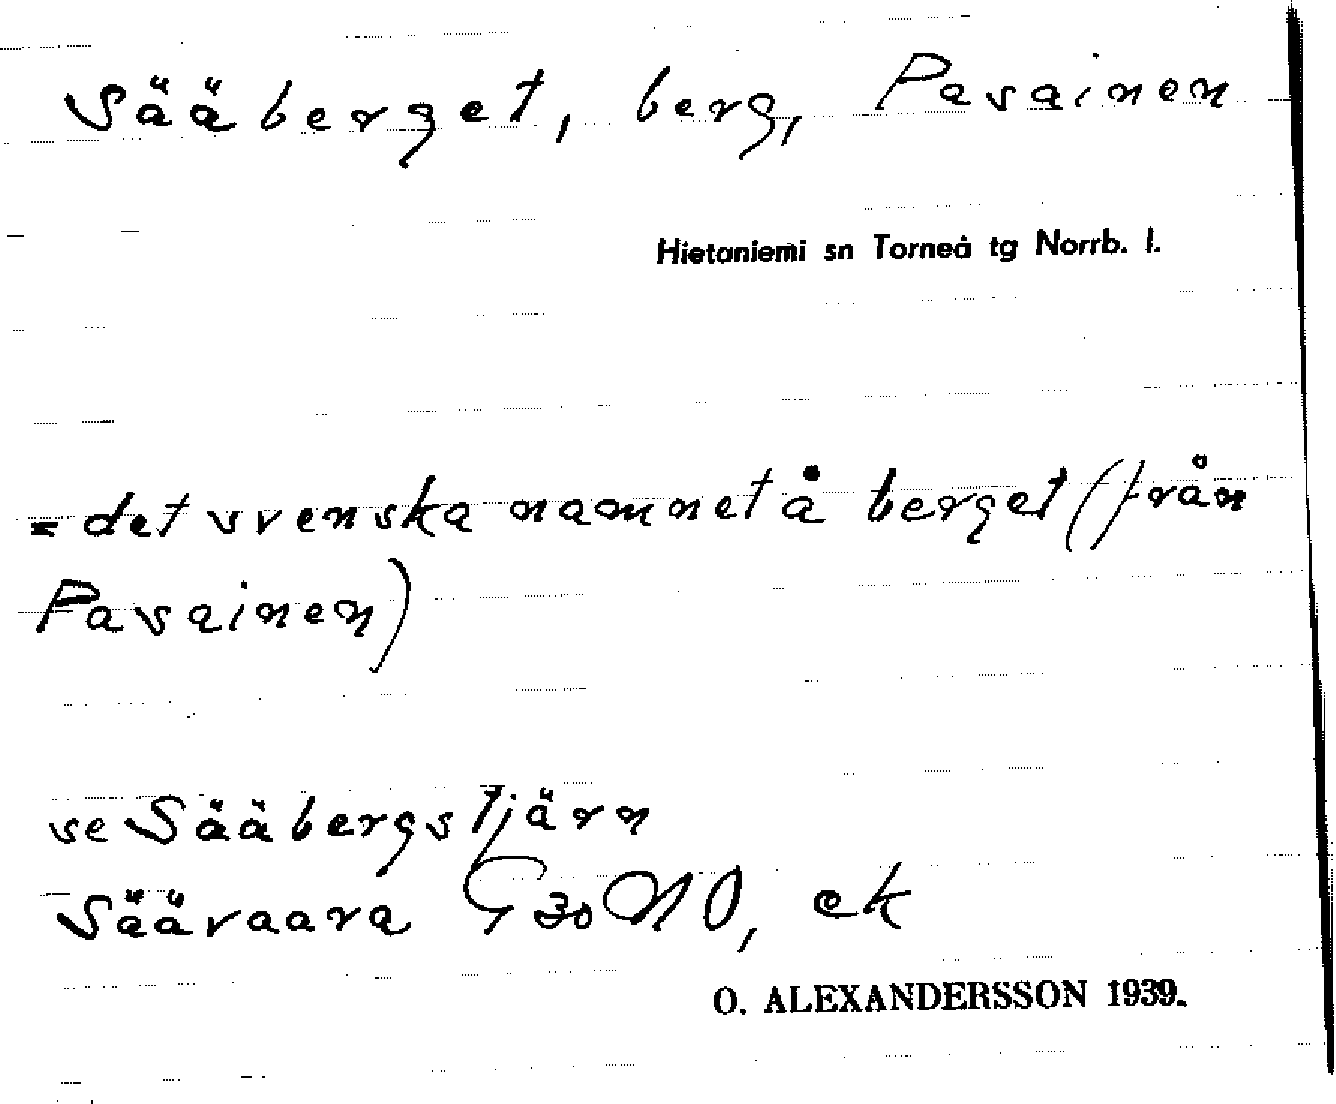 Sääberget, berg, Pasainen
Hietaniemi sn Torneå tg Norrb. l.
= det svenska namnet å berget (från
Pasainen)
se Sääbergstjärn
Säävaara G 30 NO, ek
O. ALEXANDERSSON 1939.